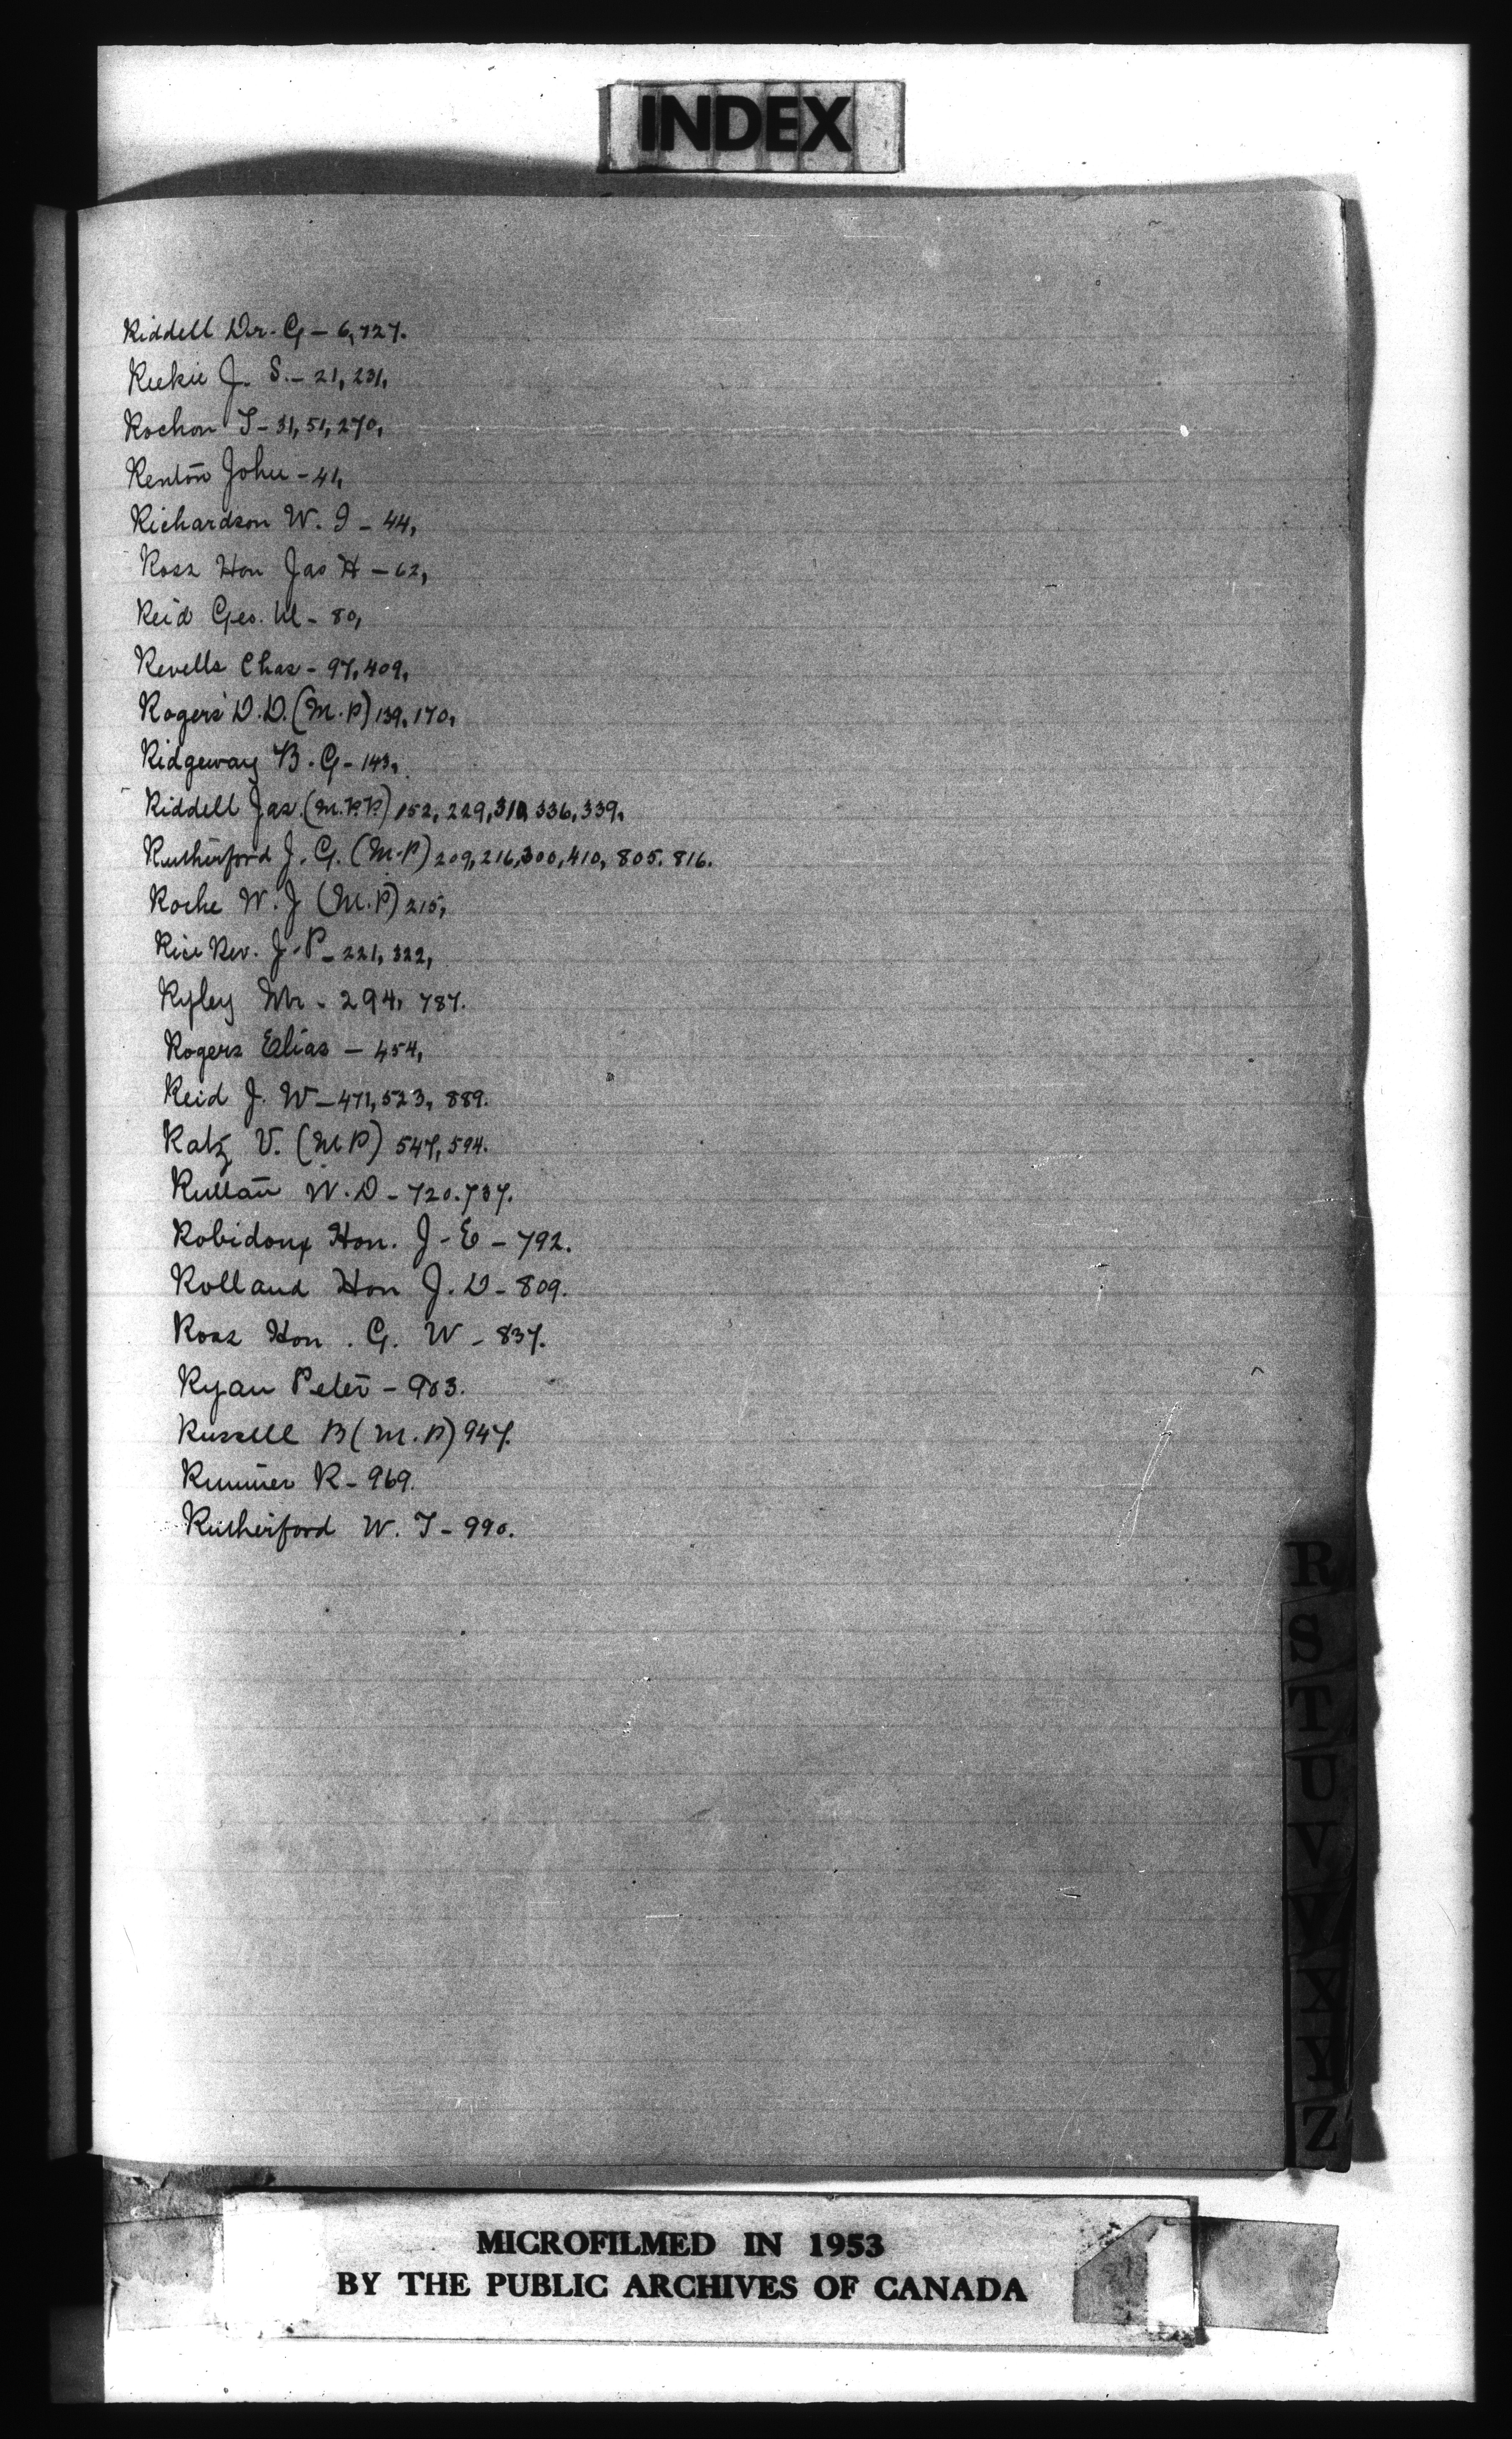 INDEX
Riddell Dr. G - 6, 727.
Reekie J. S. - 21, 231,
Rochon T - 31, 51, 270,
Renton John - 41,
Richardson W. J - 44,
Ross Hon Jas H - 62,
Reid Geo. M - 80,
Revells Chas - 97, 409,
Rogers D.D. (M.P) 139, 170,
Ridgeway B. G - 143,
Riddell Jas. (M.P.P.) 152, 229, 310, 336, 339,
Rutherford J. G. (M.P) 209, 216, 300, 410, 805. 816.
Roche W. J (M.P) 215,
Rice Rev. J. P - 221, 322,
Ryley Mr - 294, 787.
Rogers Elias - 454,
Reid J. W - 471, 523, 889.
Ratz V. (M P) 547, 594.
Ruttan W. D - 720. 737.
Robidoux Hon. J - E - 792.
Rolland Hon J. D - 809.
Ross Hon. G. W - 837.
Ryan Peter - 903.
Russell B (M.P) 947.
R - 969.
Rutherford W. T - 990.
R
S
T
U
V
W
X
Y
Z
MICROFILMED IN 1953
BY THE PUBLIC ARCHIVES OF CANADA